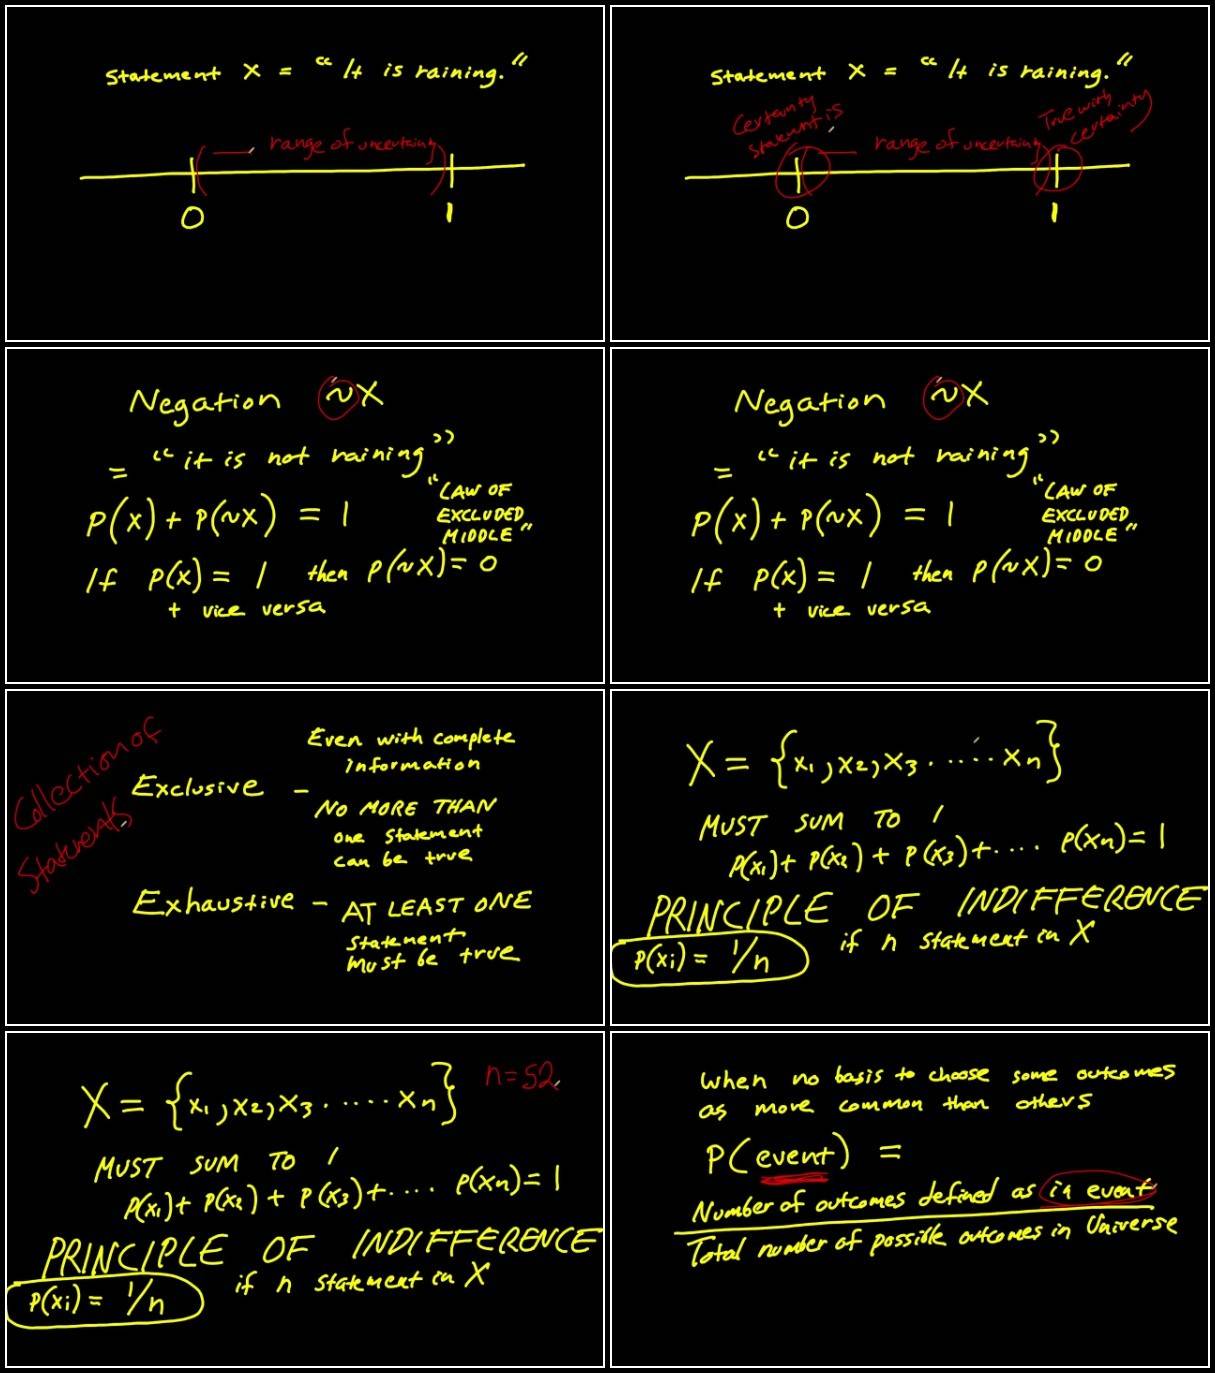 Statement X = "It is raining."
range of uncertainty
0 1
Statement X = "It is raining."
Certainty statement is
True with certainty
range of uncertainty
0 1
Negation ~X
= "it is not raining"
P(x) + P(~x) = 1
"LAW OF
EXCLUDED
MIDDLE"
If P(x) = 1 then P(~x) = 0
+ vice versa
Negation ~X
= "it is not raining"
P(x) + P(~x) = 1
"LAW OF
EXCLUDED
MIDDLE"
If P(x) = 1 then P(~x) = 0
+ vice versa
Collection of
Statements
Exclusive -
Even with complete
information
NO MORE THAN
one statement
can be true
Exhaustive - AT LEAST ONE
statement
must be true
X = {x₁, x₂, x₃ ...... xₙ}
MUST SUM TO 1
P(x₁) + P(x₂) + P(x₃) + .... P(xₙ) = 1
PRINCIPLE OF INDIFFERENCE
if n statement in X
P(xᵢ) = 1/n
X = {x₁, x₂, x₃ ..... xₙ} n=52
MUST SUM TO 1
P(x₁) + P(x₂) + P(x₃) + .... P(xₙ) = 1
PRINCIPLE OF INDIFFERENCE
if n statement in X
P(xᵢ) = 1/n
When no basis to choose some outcomes
as more common than others
P(event) =
Number of outcomes defined as in event
Total number of possible outcomes in Universe